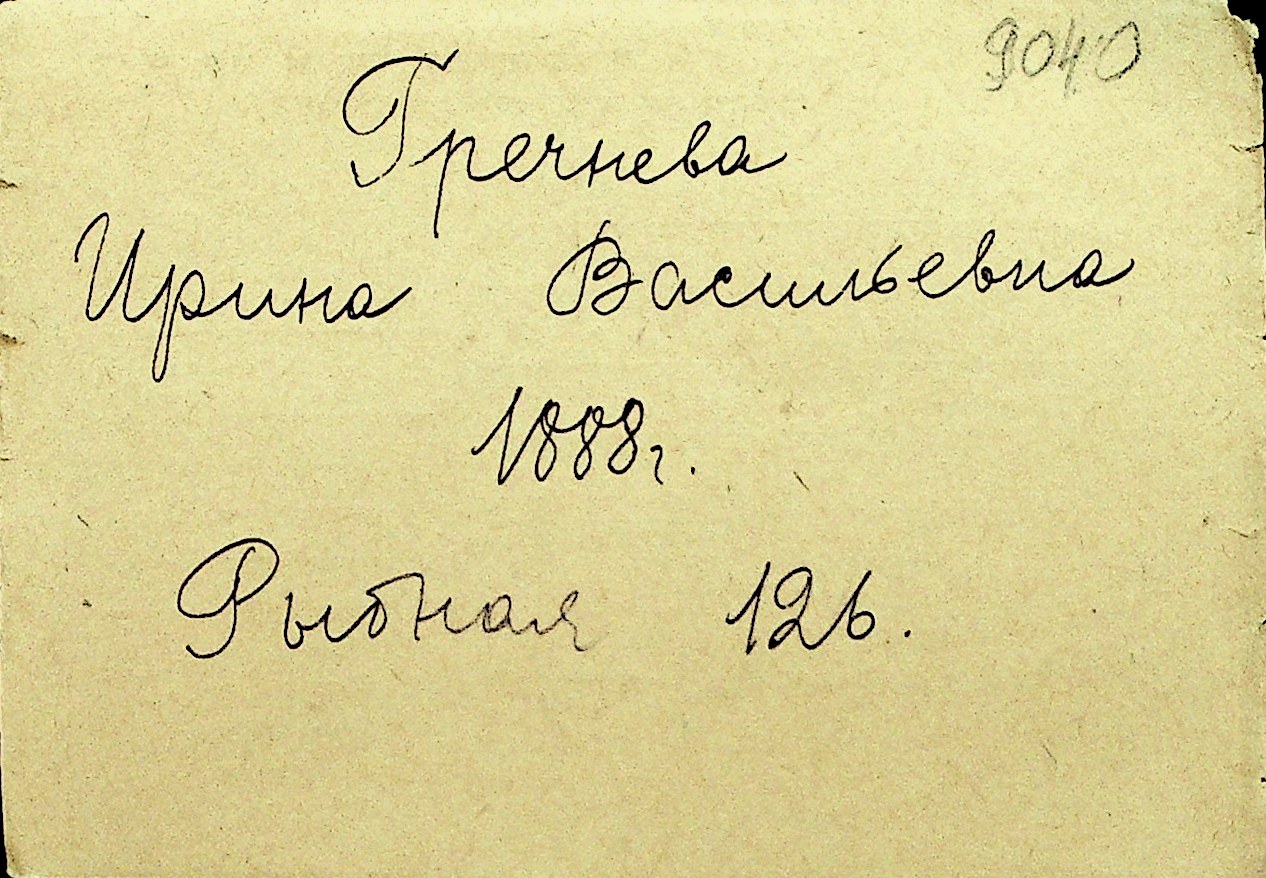 9040
Гречнева
Ирина Васильевна
1888г.
Рыбная 126.